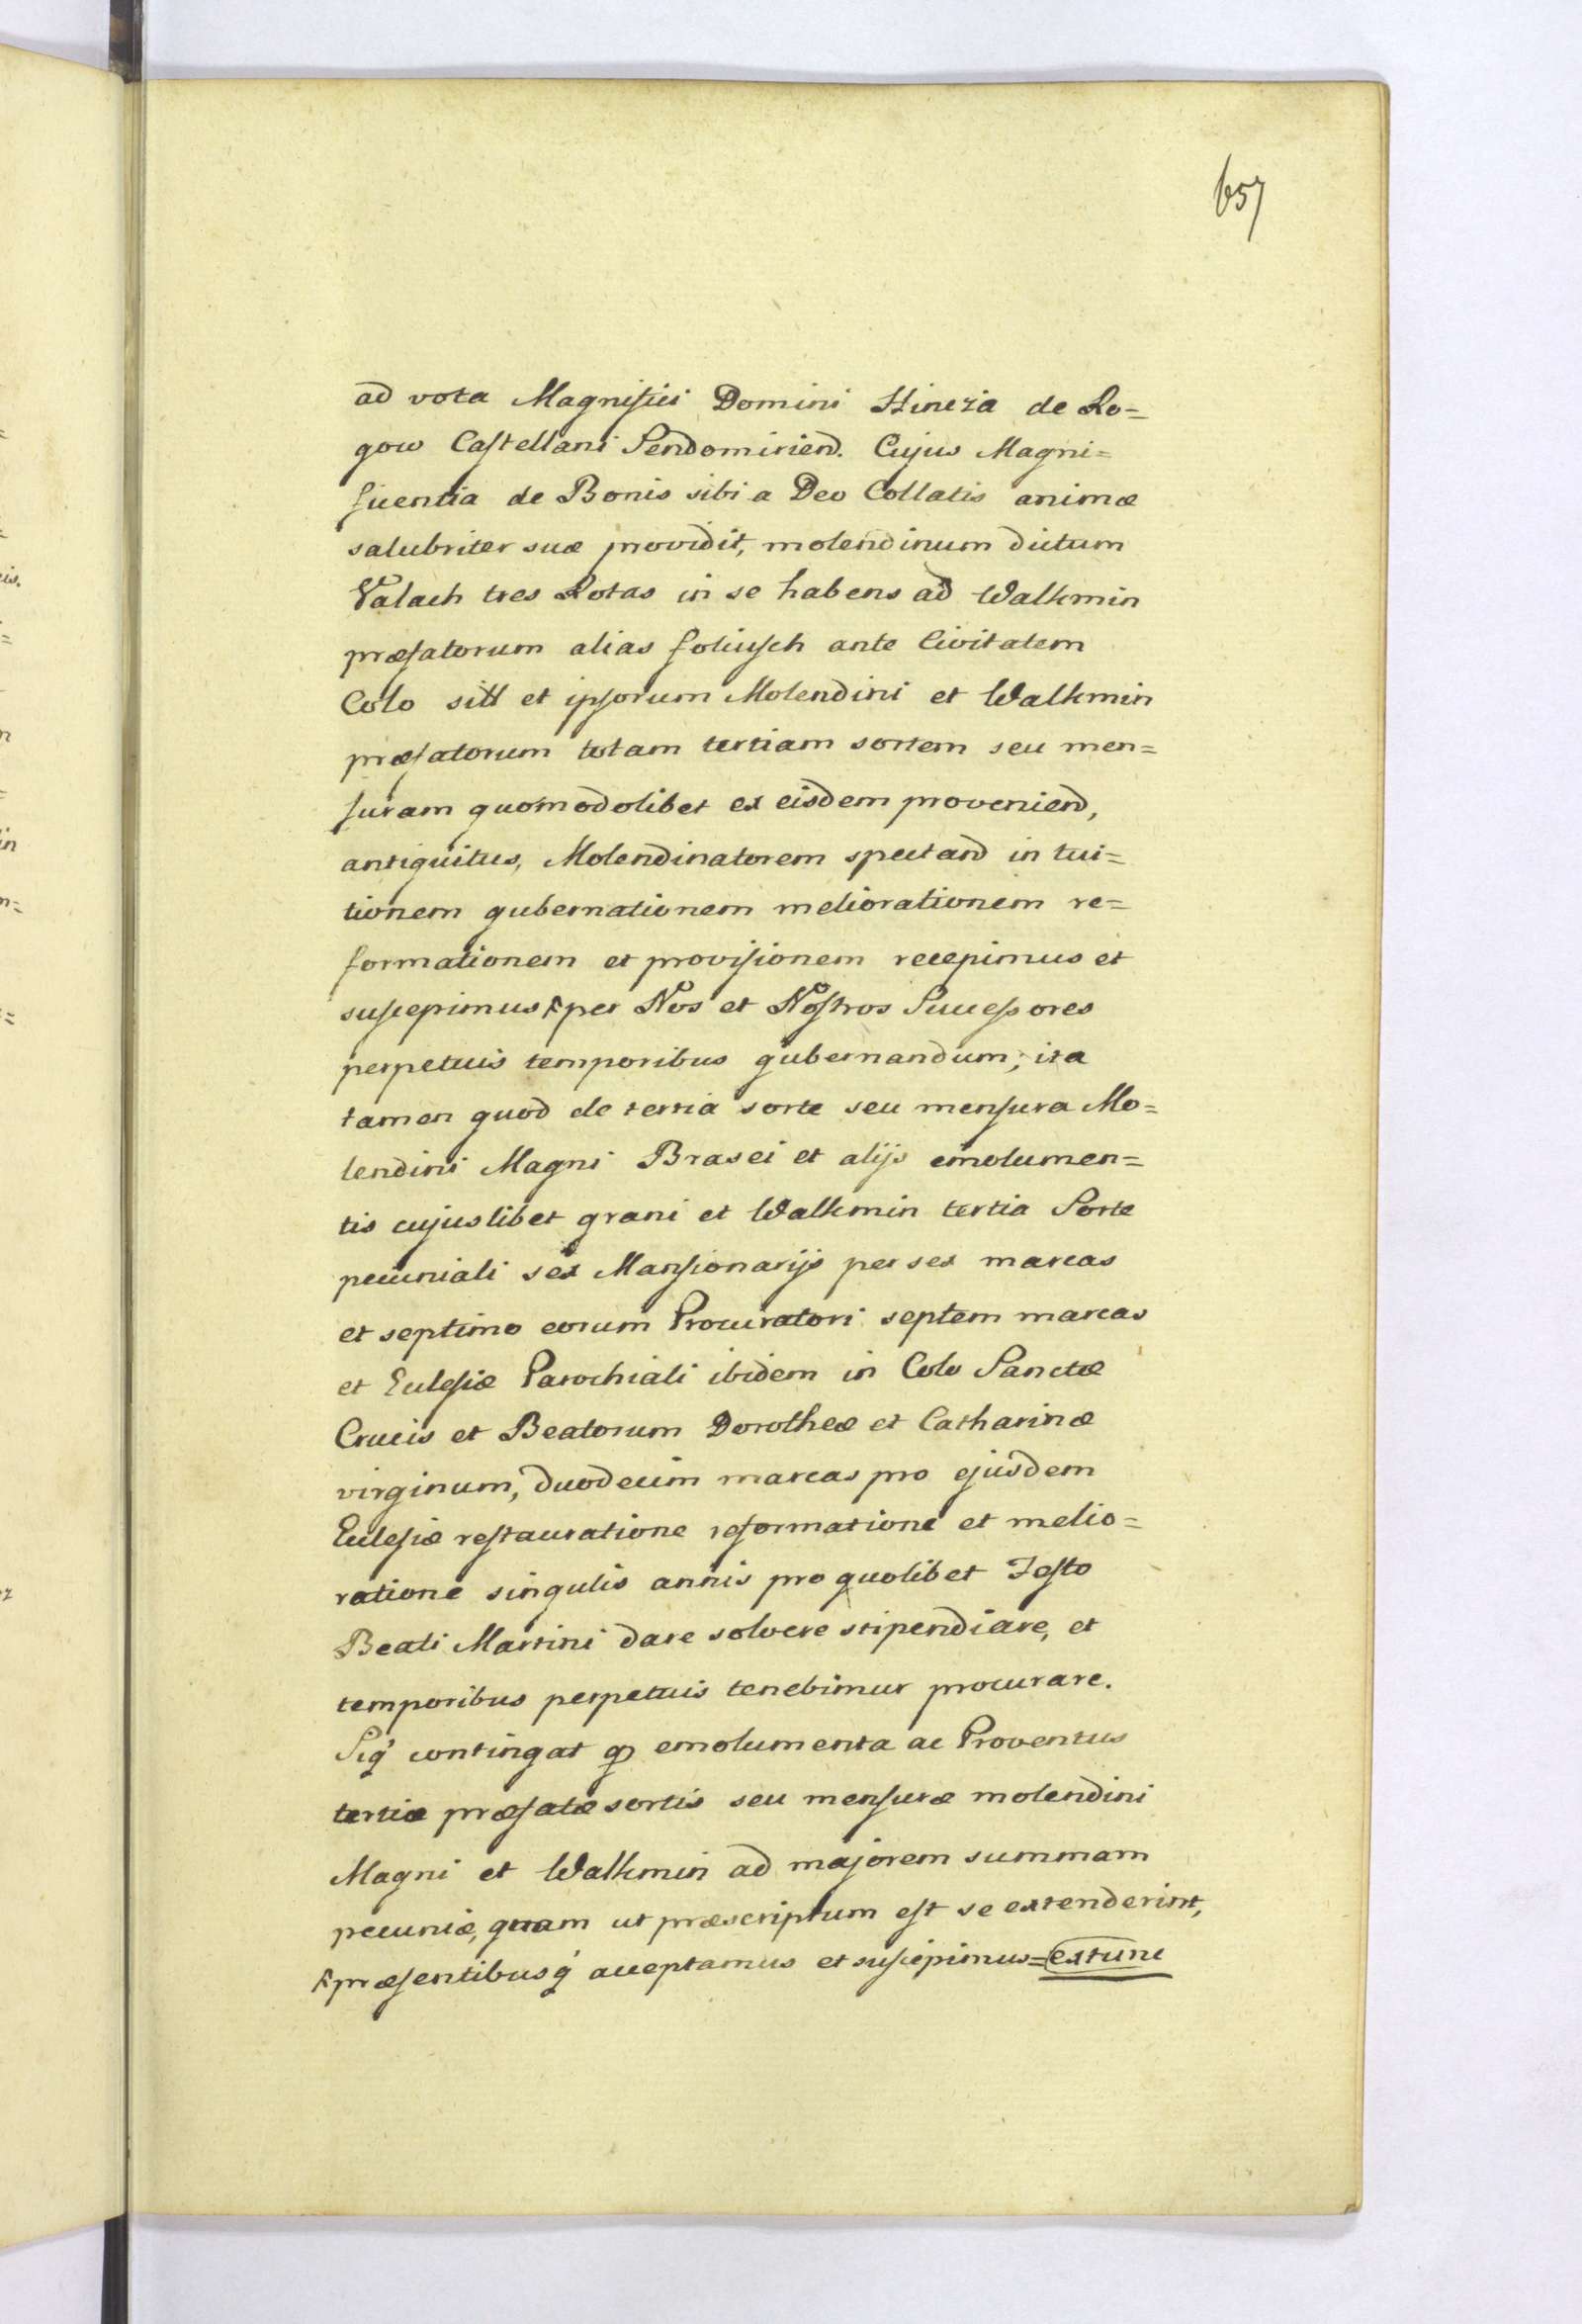 657
ad vota Magnifici Domini Hincza de Ro=
gow Castellani Sendomiriend. Cujus Magni=
ficentia de Bonis sibi a Deo Collatis animæ
salubriter suæ providit, molendinum dictum
Valach tres Rotas in se habens ad Walkmin
præfatorum alias foliusch ante Civitatem
Colo sitt et ipsorum Molendini et Walkmin
præfatorum totam tertiam sortem seu men=
suram quomodolibet ex eisdem proveniend,
antiquitus, Molendinatorem spectand in tui=
tionem gubernationem meliorationem re=
formationem et provisionem recepimus et
suscepimus per Nos et Nostros Successores
perpetuis temporibus gubernandum; ita
tamen quod de tertia sorte seu mensura Mo=
lendini Magni Brasei et alijs emolumen=
tis cujuslibet grani et Walkmin tertia Sorte
pecuniali sex Mansionarijs per sex marcas
et septimo eorum Procuratori septem marcas
et Eclesiæ Parochiali ibidem in Colo Sanctæ
Crucis et Beatorum Dorotheæ et Catharinæ
virginum, duodecim marcas pro ejusdem
Eclesiæ restauratione reformatione et melio=
ratione singulis annis pro quolibet Festo
Beati Martini dare solvere stipendiare, et
temporibus perpetuis tenebimur procurare.
Siq́ contingat emolumenta ac Proventus
tertiæ præfatæ sortis seu mensuræ molendini
Magni et Walkmin ad majorem summam
pecuniæ, quam ut præscriptum est se extenderint,
præsentibusq́ acceptamus et suscipimus= extunc